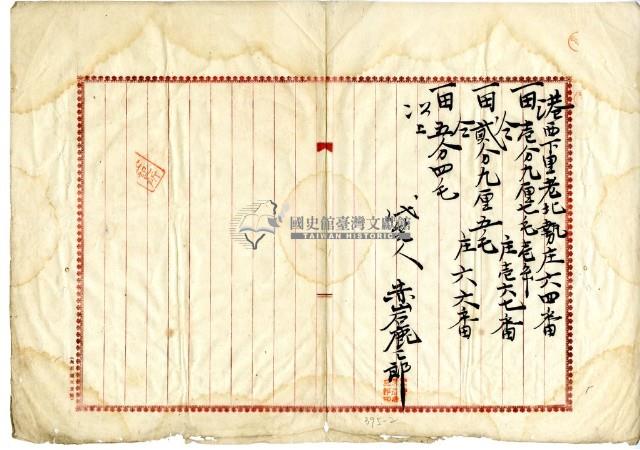 港西下里老北勢庄六四番
一田壱分九厘七毛壱糸
仝 庄壱六七番
一田貳分九厘五毛
仝 庄六六番
一田五分四毛
以上
代人 赤岩鹿三郎
國史館臺灣文獻館
TAIWAN HISTORICA
395-2